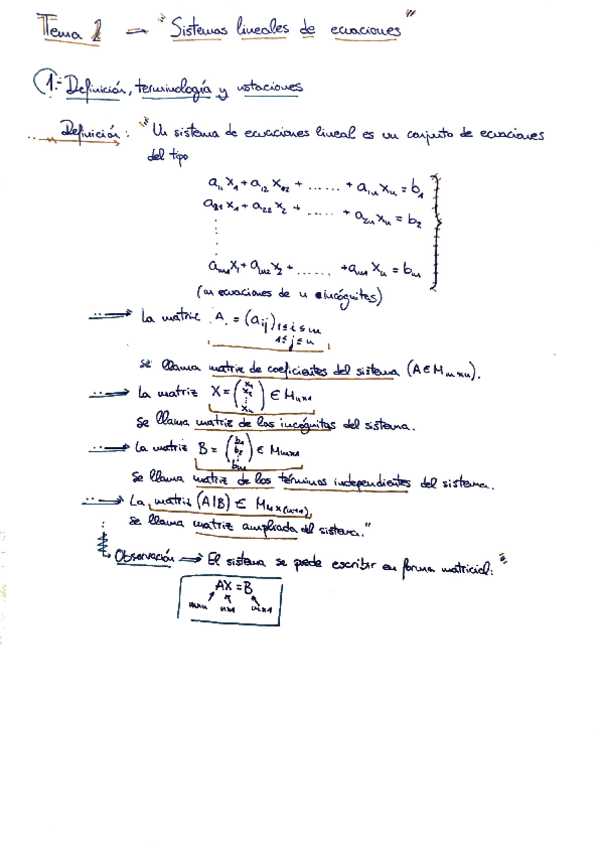 Tema 1 → "Sistemas lineales de ecuaciones"
1.- Definición, terminología y notaciones
Definición: "Un sistema de ecuaciones lineal es un conjunto de ecuaciones
del tipo
a₁₁x₁ + a₁₂x₂ + ...... + a₁ₙxₙ = b₁
a₂₁x₁ + a₂₂x₂ + ...... + a₂ₙxₙ = b₂
⋮
aₘ₁x₁ + aₘ₂x₂ + ...... + aₘₙxₙ = bₘ
(m ecuaciones de n incógnitas)
→ La matriz A = (aᵢⱼ) 1≤i≤m 1≤j≤n
se llama matriz de coeficientes del sistema (A ∈ Mₘₓₙ).
→ La matriz X = (x₁ x₂ ⋮ xₙ) ∈ Mₙₓ₁
se llama matriz de las incógnitas del sistema.
→ La matriz B = (b₁ b₂ ⋮ bₘ) ∈ Mₘₓ₁
se llama matriz de los términos independientes del sistema.
→ La matriz (A|B) ∈ Mₘₓ₍ₙ₊₁₎
se llama matriz ampliada del sistema."
Observación → El sistema se puede escribir en forma matricial:
AX = B
mxn nx1 mx1